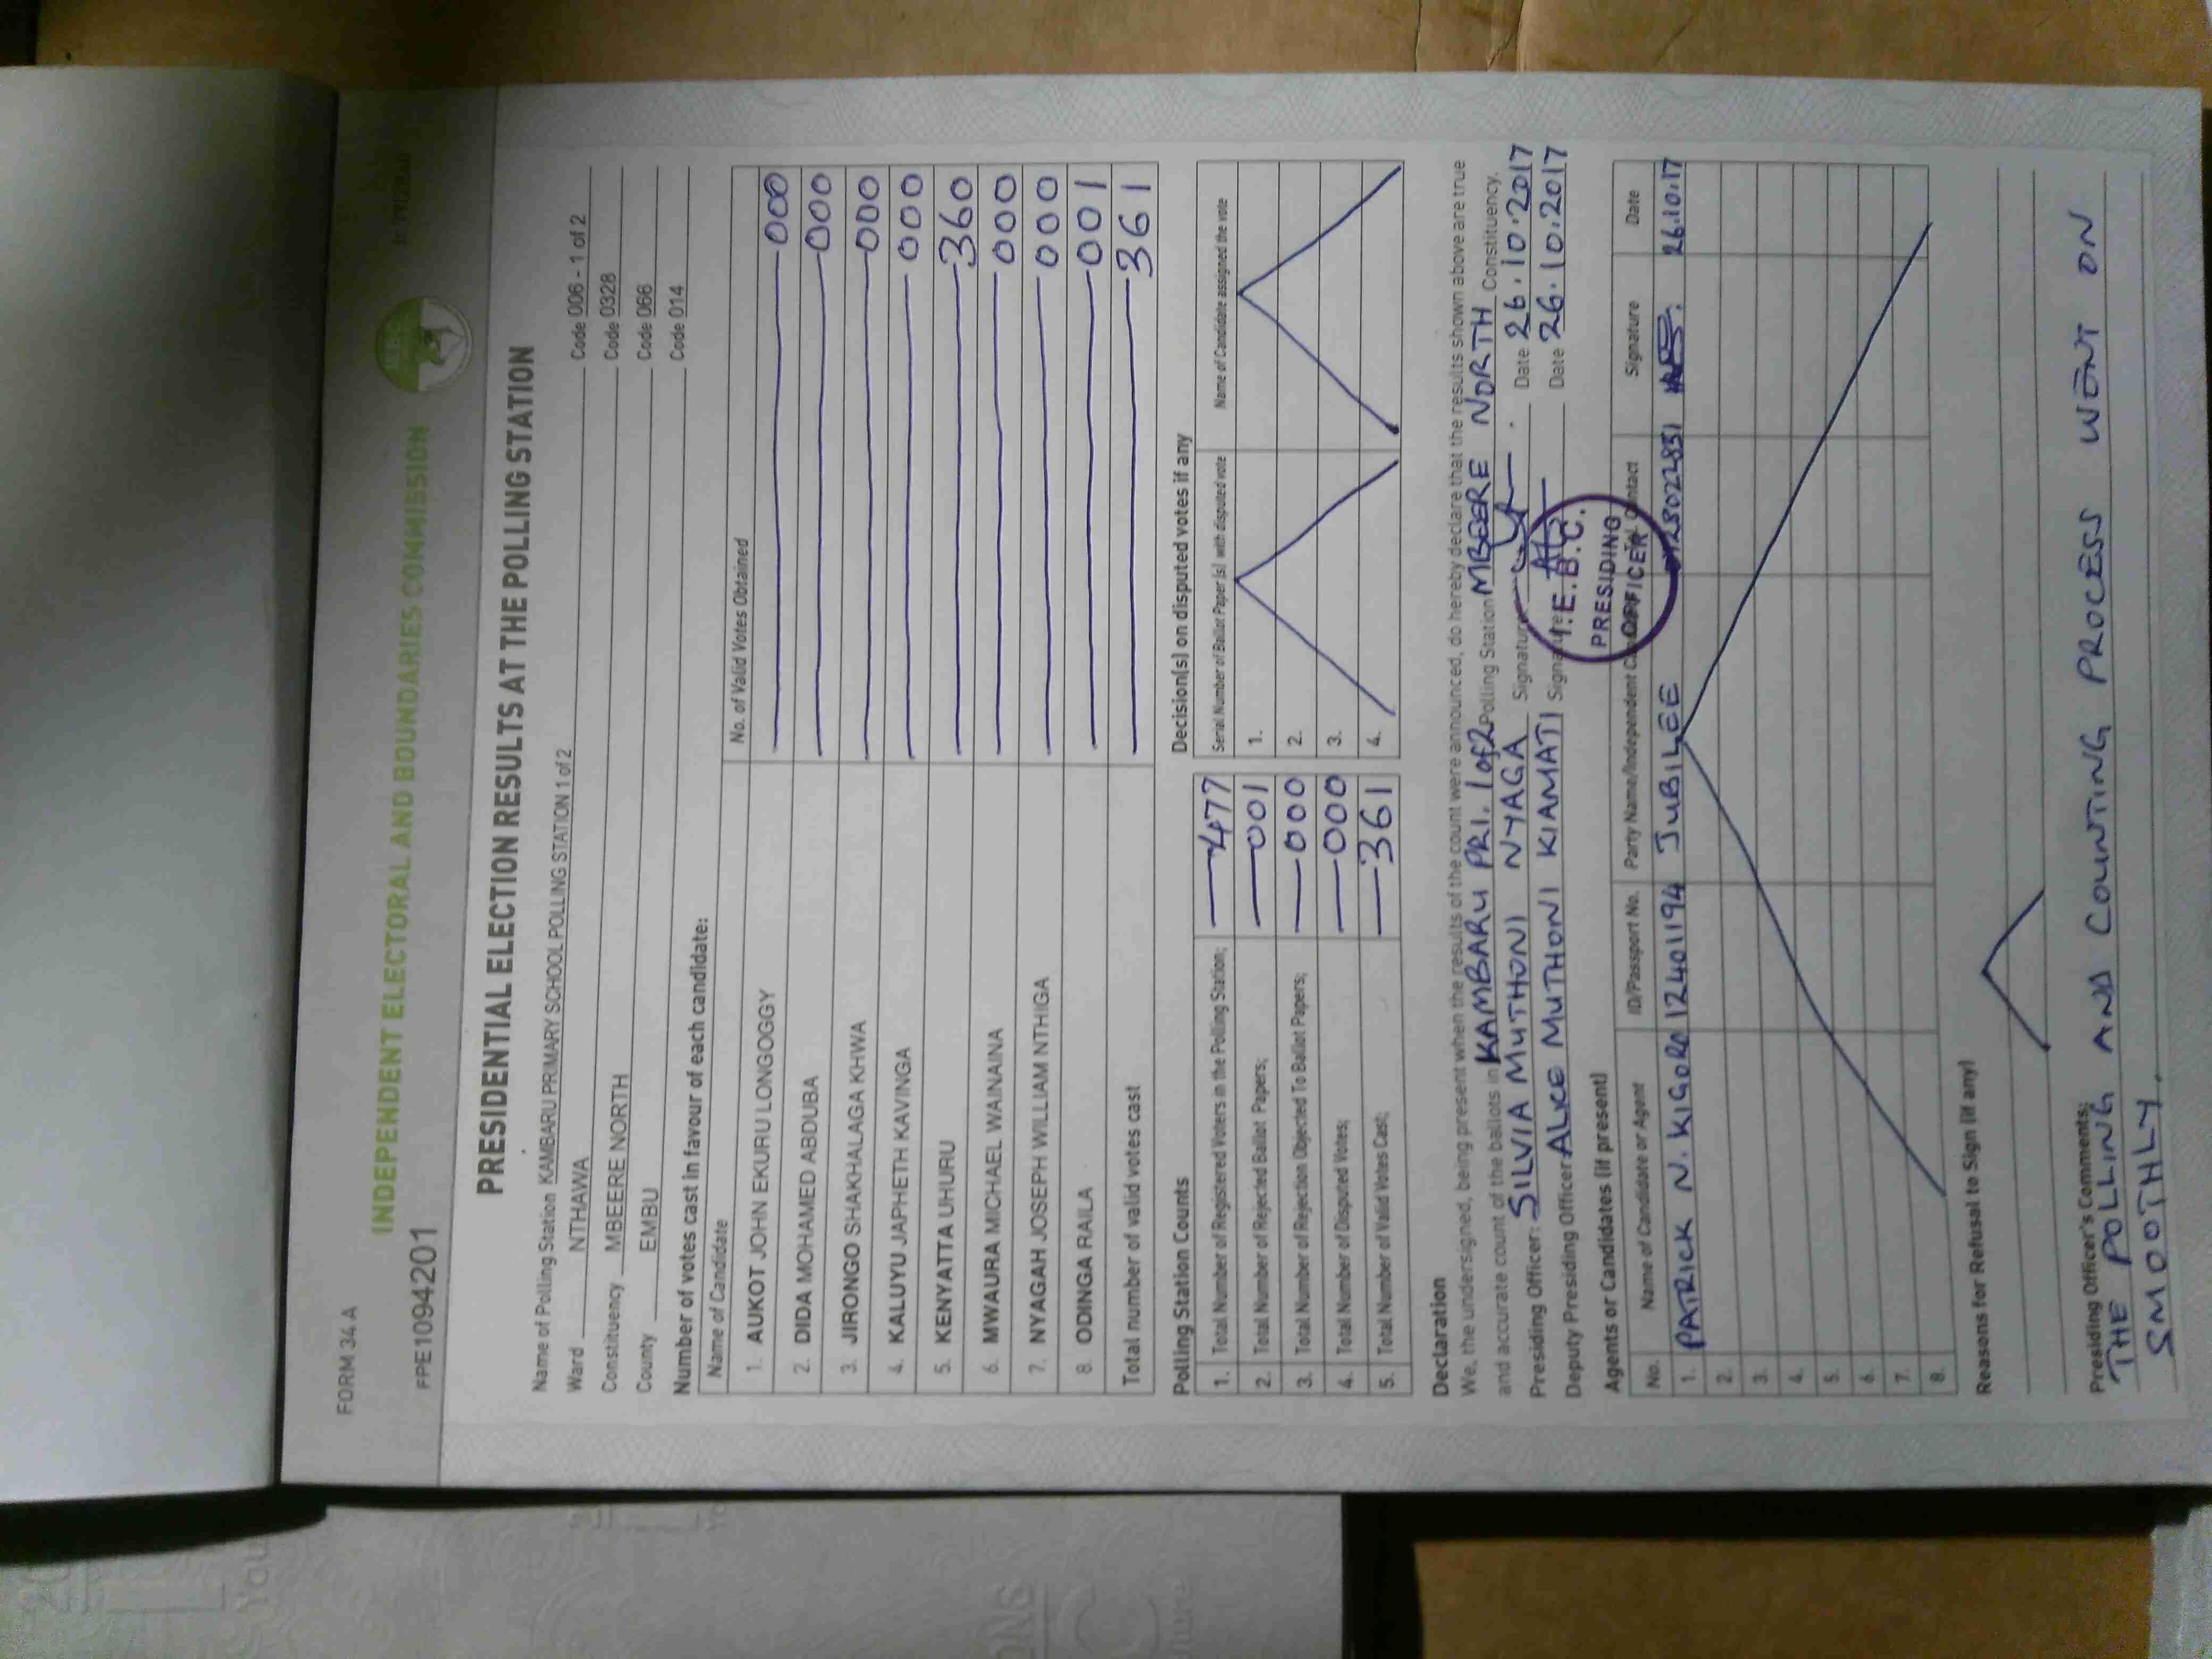 FORM 34 A
INDEPENDENT ELECTORAL AND BOUNDARIES COMMISSION
FPE1094201
PRESIDENTIAL ELECTION RESULTS AT THE POLLING STATION
Name of Polling Station KAMBARU PRIMARY SCHOOL POLLING STATION 1 of 2 Code 006 - 1 of 2
Ward NTHAWA Code 0328
Constituency MBEERE NORTH Code 066
County EMBU Code 014
Number of votes cast in favour of each candidate:
Name of Candidate No. of Valid Votes Obtained
1. AUKOT JOHN EKURU LONGOGGY 000
2. DIDA MOHAMED ABDUBA 000
3. JIRONGO SHAKHALAGA KHWA 000
4. KALUYU JAPHETH KAVINGA 000
5. KENYATTA UHURU 360
6. MWAURA MICHAEL WAINAINA 000
7. NYAGAH JOSEPH WILLIAM NTHIGA 000
8. ODINGA RAILA 001
Total number of valid votes cast 361
Polling Station Counts
1. Total Number of Registered Voters in the Polling Station; 477
2. Total Number of Rejected Ballot Papers; 001
3. Total Number of Rejection Objected To Ballot Papers; 000
4. Total Number of Disputed Votes; 000
5. Total Number of Valid Votes Cast; 361
Decision(s) on disputed votes if any
Serial Number of Ballot Paper (s) with disputed vote Name of Candidate assigned the vote
1.
2.
3.
4.
Declaration
We, the undersigned, being present when the results of the count were announced, do hereby declare that the results shown above are true
and accurate count of the ballots in KAMBARU PRI. 1 of 2 Polling Station MBEERE NORTH Constituency.
Presiding Officer: SILVIA MUTHONI NYAGA Signature Date 26.10.2017
Deputy Presiding Officer ALICE MUTHONI KIAMATI Signature Date 26.10.2017
I.E.B.C.
PRESIDING
OFFICER
Agents or Candidates (if present)
No. Name of Candidate or Agent ID/Passport No. Party Name/Independent Contact Signature Date
1. PATRICK N. KIGORO 12401194 JUBILEE 26.10.17
2.
3.
4.
5.
6.
7.
8.
Reasons for Refusal to Sign (if any)
Presiding Officer's Comments:
THE POLLING AND COUNTING PROCESS WENT ON
SMOOTHLY.